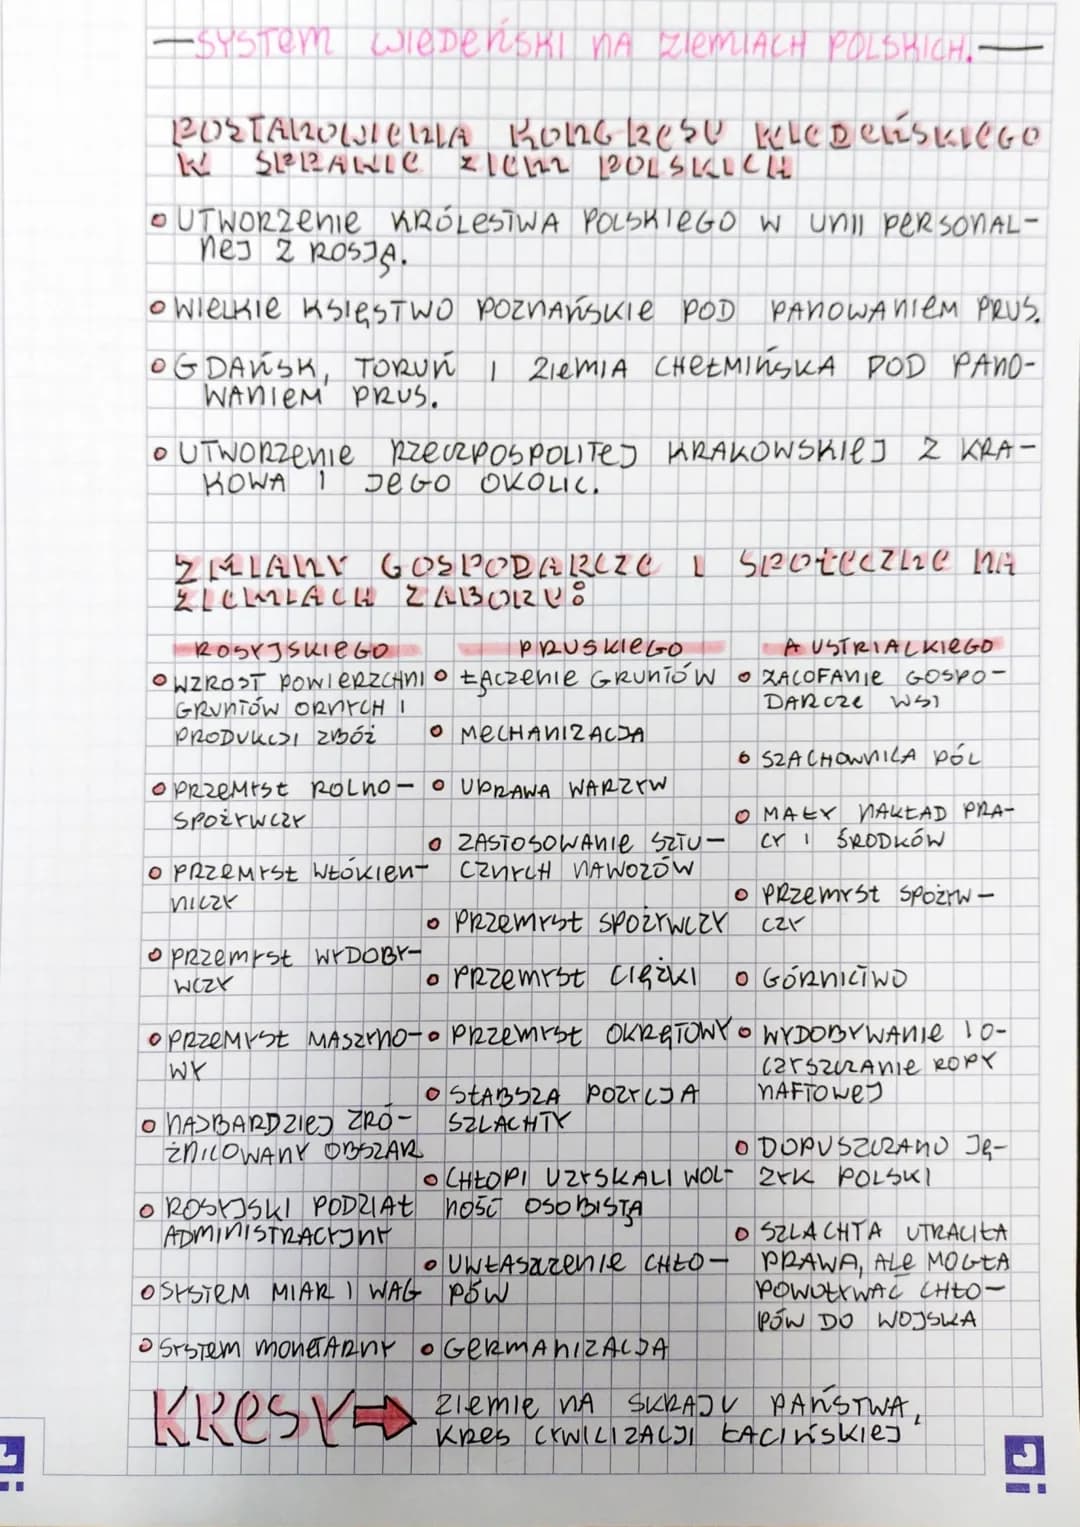 —SYSTEM WIEDEŃSKI NA ZIEMIACH POLSKICH.—
POSTANOWIENIA KONGRESU WIEDEŃSKIEGO
W SPRAWIE ZIEM POLSKICH
• UTWORZENIE KRÓLESTWA POLSKIEGO W UNII PERSONAL-
NEJ Z ROSJĄ.
• WIELKIE KSIĘSTWO POZNAŃSKIE POD PANOWANIEM PRUS.
• GDAŃSK, TORUŃ I ZIEMIA CHEŁMIŃSKA POD PANO-
WANIEM PRUS.
• UTWORZENIE RZECZPOSPOLITEJ KRAKOWSKIEJ Z KRA-
KOWA I JEGO OKOLIC.
ZMIANY GOSPODARCZE I SPOŁECZNE NA
ZIEMIACH ZABORU:
ROSYJSKIEGO
• WZROST POWIERZCHNI
GRUNTÓW ORNYCH I
PRODUKCJI ZBÓŻ
• PRZEMYSŁ ROLNO-
SPOŻYWCZY
• PRZEMYSŁ WŁÓKIEN-
NICZY
• PRZEMYSŁ WYDOBY-
WCZY
• PRZEMYSŁ MASZYNO-
WY
• NAJBARDZIEJ ZRÓ-
ŻNICOWANY OBSZAR
• ROSYJSKI PODZIAŁ
ADMINISTRACYJNY
• SYSTEM MIAR I WAG
• SYSTEM MONETARNY
PRUSKIEGO
• ŁĄCZENIE GRUNTÓW
• MECHANIZACJA
• UPRAWA WARZYW
• ZASTOSOWANIE SZTU-
CZNYCH NAWOZÓW
• PRZEMYSŁ SPOŻYWCZY
• PRZEMYSŁ CIĘŻKI
• PRZEMYSŁ OKRĘTOWY
• SŁABSZA POZYCJA
SZLACHTY
• CHŁOPI UZYSKALI WOL-
NOŚĆ OSOBISTĄ
• UWŁASZCZENIE CHŁO-
PÓW
• GERMANIZACJA
AUSTRIALKIEGO
• ZACOFANIE GOSPO-
DARCZE WSI
• SZACHOWNICA PÓL
• MAŁY NAKŁAD PRA-
CY I ŚRODKÓW
• PRZEMYSŁ SPOŻYW-
CZY
• GÓRNICTWO
• WYDOBYWANIE I O-
CZYSZCZANIE ROPY
NAFTOWEJ
• DOPUSZCZANO JĘ-
ZYK POLSKI
• SZLACHTA UTRACIŁA
PRAWA, ALE MOGŁA
POWOŁYWAĆ CHŁO-
PÓW DO WOJSKA
KRESY → ZIEMIE NA SKRAJU PAŃSTWA,
KRES CYWILIZACJI ŁACIŃSKIEJ